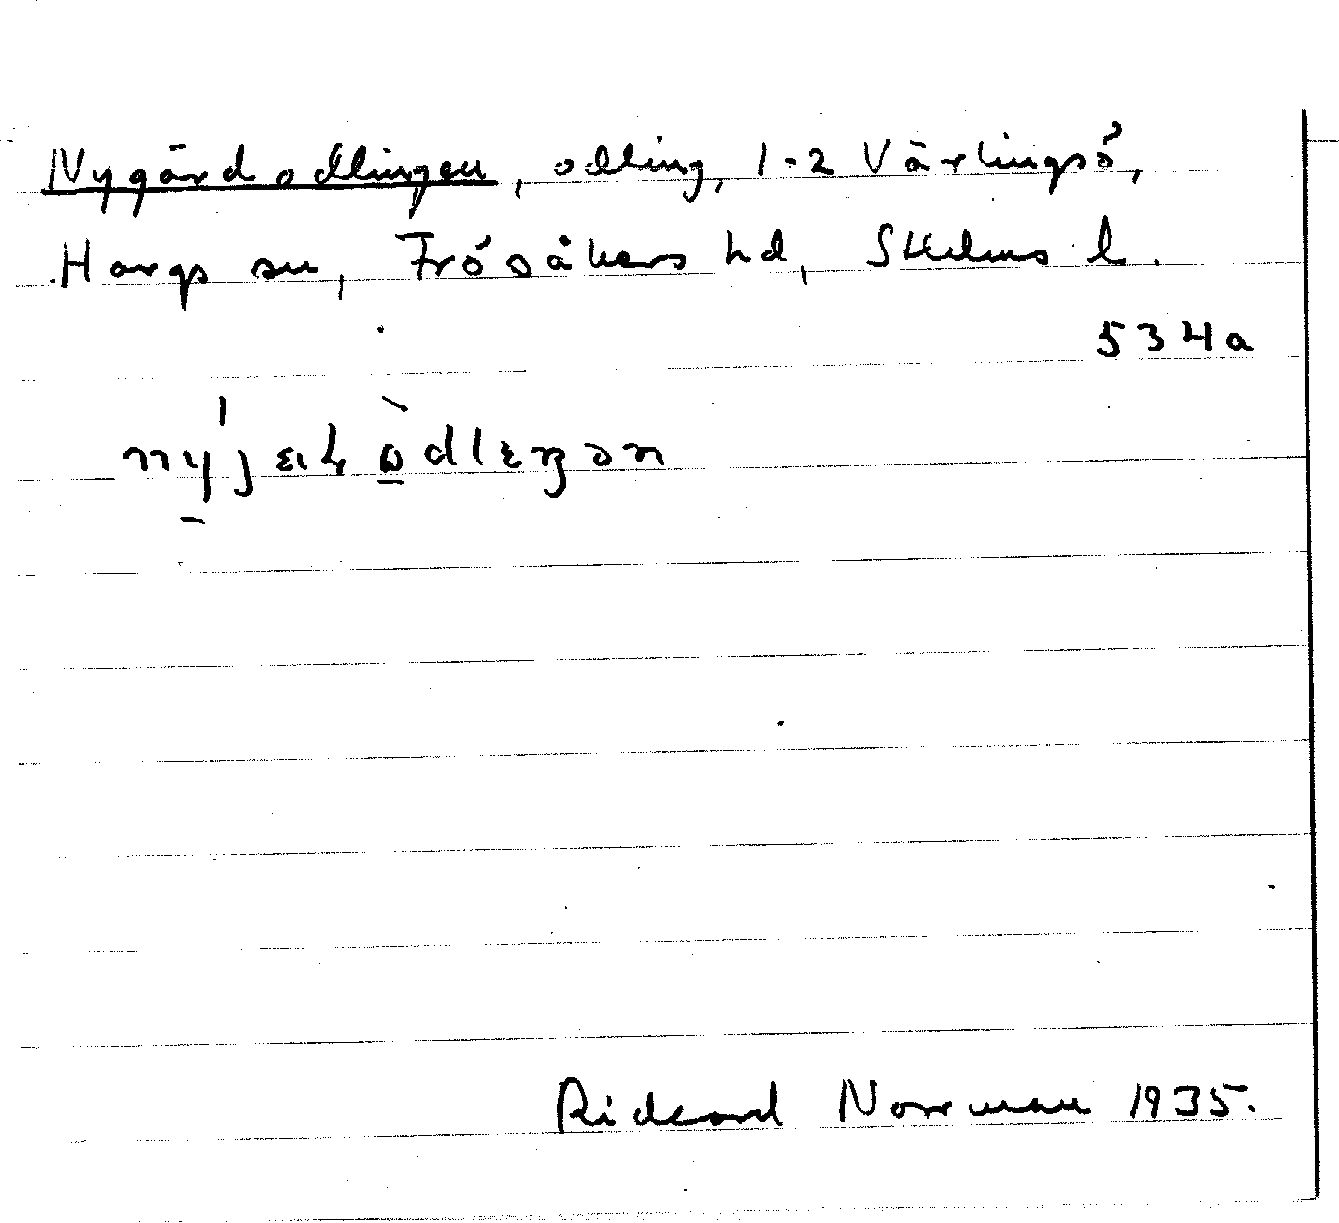 Nygärdodlingen, odling, 1-2 Värlingsö,
Hargs sn, Frösåkers hd, Sthlms l.
534a
Rickard Norrman 1935.